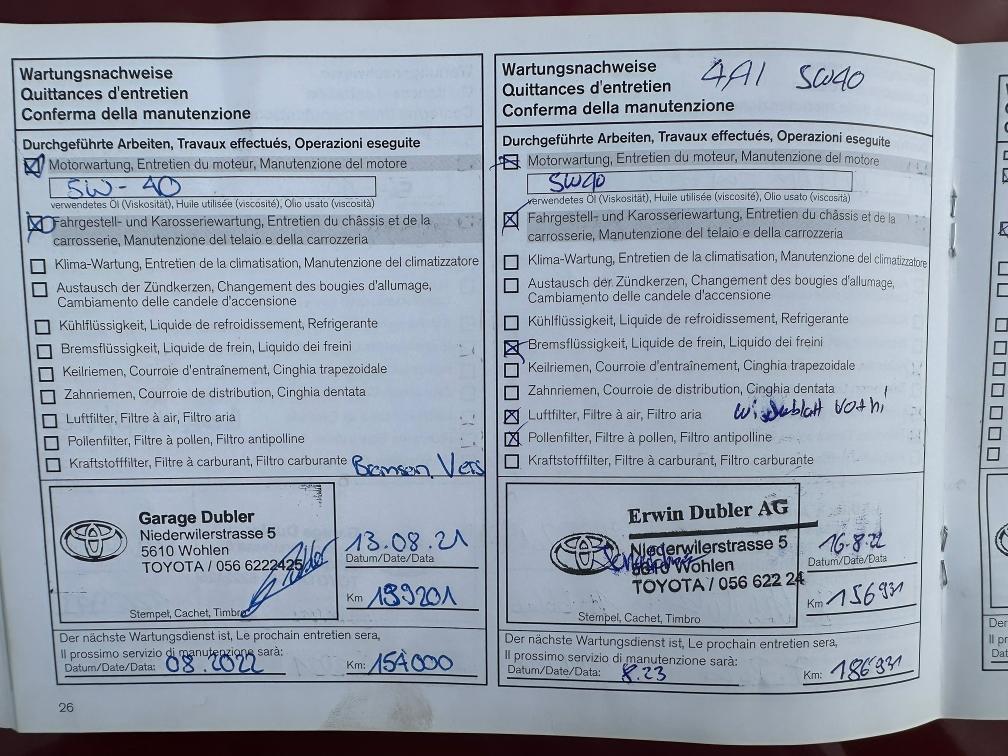 Wartungsnachweise
Quittances d'entretien
Conferma della manutenzione
Durchgeführte Arbeiten, Travaux effectués, Operazioni eseguite
Motorwartung, Entretien du moteur, Manutenzione del motore
5W-40
verwendetes Öl (Viskosität), Huile utilisée (viscosité), Olio usato (viscosità)
Fahrgestell- und Karosseriewartung, Entretien du châssis et de la
carrosserie, Manutenzione del telaio e della carrozzeria
Klima-Wartung, Entretien de la climatisation, Manutenzione del climatizzatore
Austausch der Zündkerzen, Changement des bougies d'allumage,
Cambiamento delle candele d'accensione
Kühlflüssigkeit, Liquide de refroidissement, Refrigerante
Bremsflüssigkeit, Liquide de frein, Liquido dei freini
Keilriemen, Courroie d'entraînement, Cinghia trapezoidale
Zahnriemen, Courroie de distribution, Cinghia dentata
Luftfilter, Filtre à air, Filtro aria
Pollenfilter, Filtre à pollen, Filtro antipolline
Kraftstofffilter, Filtre à carburant, Filtro carburante Bremsen, Vers
Garage Dubler
Niederwilerstrasse 5
5610 Wohlen
TOYOTA / 056 6222425
Stempel, Cachet, Timbro
13.08.21
Datum/Date/Data
Km 139201
Der nächste Wartungsdienst ist, Le prochain entretien sera,
Il prossimo servizio di manutenzione sarà:
Datum/Date/Data: 08.2022 Km: 154000
26
Wartungsnachweise
Quittances d'entretien
Conferma della manutenzione
4A1 5W40
Durchgeführte Arbeiten, Travaux effectués, Operazioni eseguite
Motorwartung, Entretien du moteur, Manutenzione del motore
5W40
verwendetes Öl (Viskosität), Huile utilisée (viscosité), Olio usato (viscosità)
Fahrgestell- und Karosseriewartung, Entretien du châssis et de la
carrosserie, Manutenzione del telaio e della carrozzeria
Klima-Wartung, Entretien de la climatisation, Manutenzione del climatizzatore
Austausch der Zündkerzen, Changement des bougies d'allumage,
Cambiamento delle candele d'accensione
Kühlflüssigkeit, Liquide de refroidissement, Refrigerante
Bremsflüssigkeit, Liquide de frein, Liquido dei freini
Keilriemen, Courroie d'entraînement, Cinghia trapezoidale
Zahnriemen, Courroie de distribution, Cinghia dentata
Luftfilter, Filtre à air, Filtro aria
Pollenfilter, Filtre à pollen, Filtro antipolline
Kraftstofffilter, Filtre à carburant, Filtro carburante
Erwin Dubler AG
Niederwilerstrasse 5
5610 Wohlen
TOYOTA / 056 622 24
Stempel, Cachet, Timbro
16.8.22
Datum/Date/Data
Km 156931
Der nächste Wartungsdienst ist, Le prochain entretien sera,
Il prossimo servizio di manutenzione sarà:
Datum/Date/Data: 8.23 Km: 186931